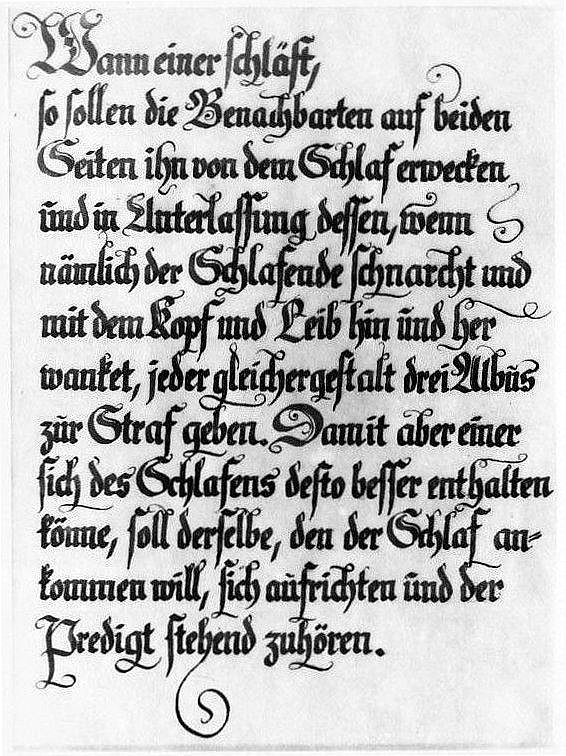 Wann einer schläft,
so sollen die Benachbarten auf beiden
Seiten ihn von dem Schlaf erwecken
und in Unterlassung dessen, wenn
nämlich der Schlafende schnarcht und
mit dem Kopf und Leib hin und her
wanket, jeder gleichergestalt drei Albus
zur Straf geben. Damit aber einer
sich des Schlafens desto besser enthalten
könne, soll derselbe, den der Schlaf an-
kommen will, sich aufrichten und der
Predigt stehend zuhören.